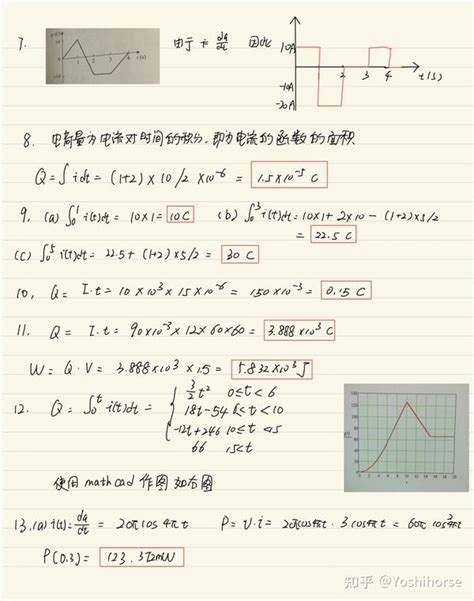 7. 由于 i= dq/dt 因此
10A
-10A
-20A
1 2 3 4 t(s)
8. 电荷量为电流对时间的积分，即为电流的函数的面积
Q=∫idt = (1+2)×10/2 ×10⁻⁶ = 1.5×10⁻⁵ C
9. (a) ∫₀¹ i(t)dt = 10×1 = 10C (b) ∫₀³ i(t)dt = 10×1 + 2×10 - (1+2)×5/2
= 22.5 C
(c) ∫₀⁵ i(t)dt = 22.5 + (1+2)×5/2 = 30 C
10. Q = I·t = 10×10³×15×10⁻⁶ = 150×10⁻³ = 0.15 C
11. Q = I·t = 90×10⁻³×12×60×60 = 3.888×10³ C
W = Q·V = 3.888×10³×1.5 = 5.832×10³ J
12. Q = ∫₀ᵗ i(t)dt =
3/2 t² 0≤t<6
18t-54 6≤t<10
-12t+246 10≤t<15
66 15<t
使用mathcad作图如右图
13. (a) i(t) = dq/dt = 20π cos 4πt P = v·i = 20πcos4πt · 3cos4πt = 60π cos²4πt
P(0.3) = 123.372mW
知乎 @Yoshihorse